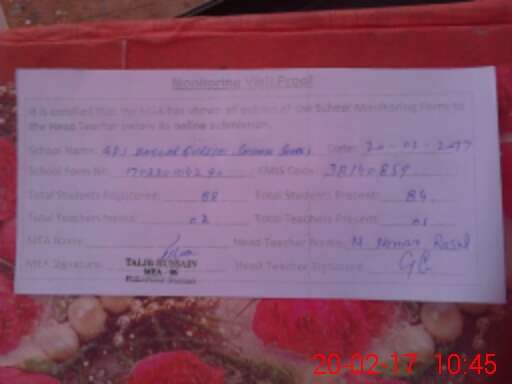 Monitoring Visit Proof
It is certified that the MEA has shown all entries of the School Monitoring Form to
the Head Teacher before its online submission.
School Name: GPS Date: 20-02-2017
School Form No: EMIS Code: 38140859
Total Students Registered: 88 Total Students Present: 84
Total Teachers Posted: 02 Total Teachers Present: 01
MEA Name: Head Teacher Name: M. Noman Rasul
MEA Signature: TALIB HUSSAIN Head Teacher Signature:
MEA - 06
20-02-17 10:45